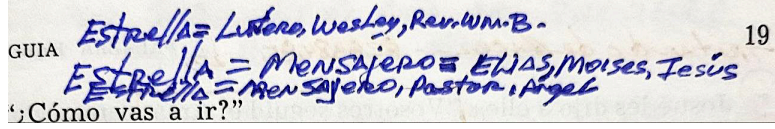 Estrella = Lutero, Wesley, Rev. Wm. B.
GUIA 19
Estrella = Mensajero = Elias, Moises, Jesús
Estrella = Mensajero, Pastor, Angel
“¿Cómo vas a ir?”